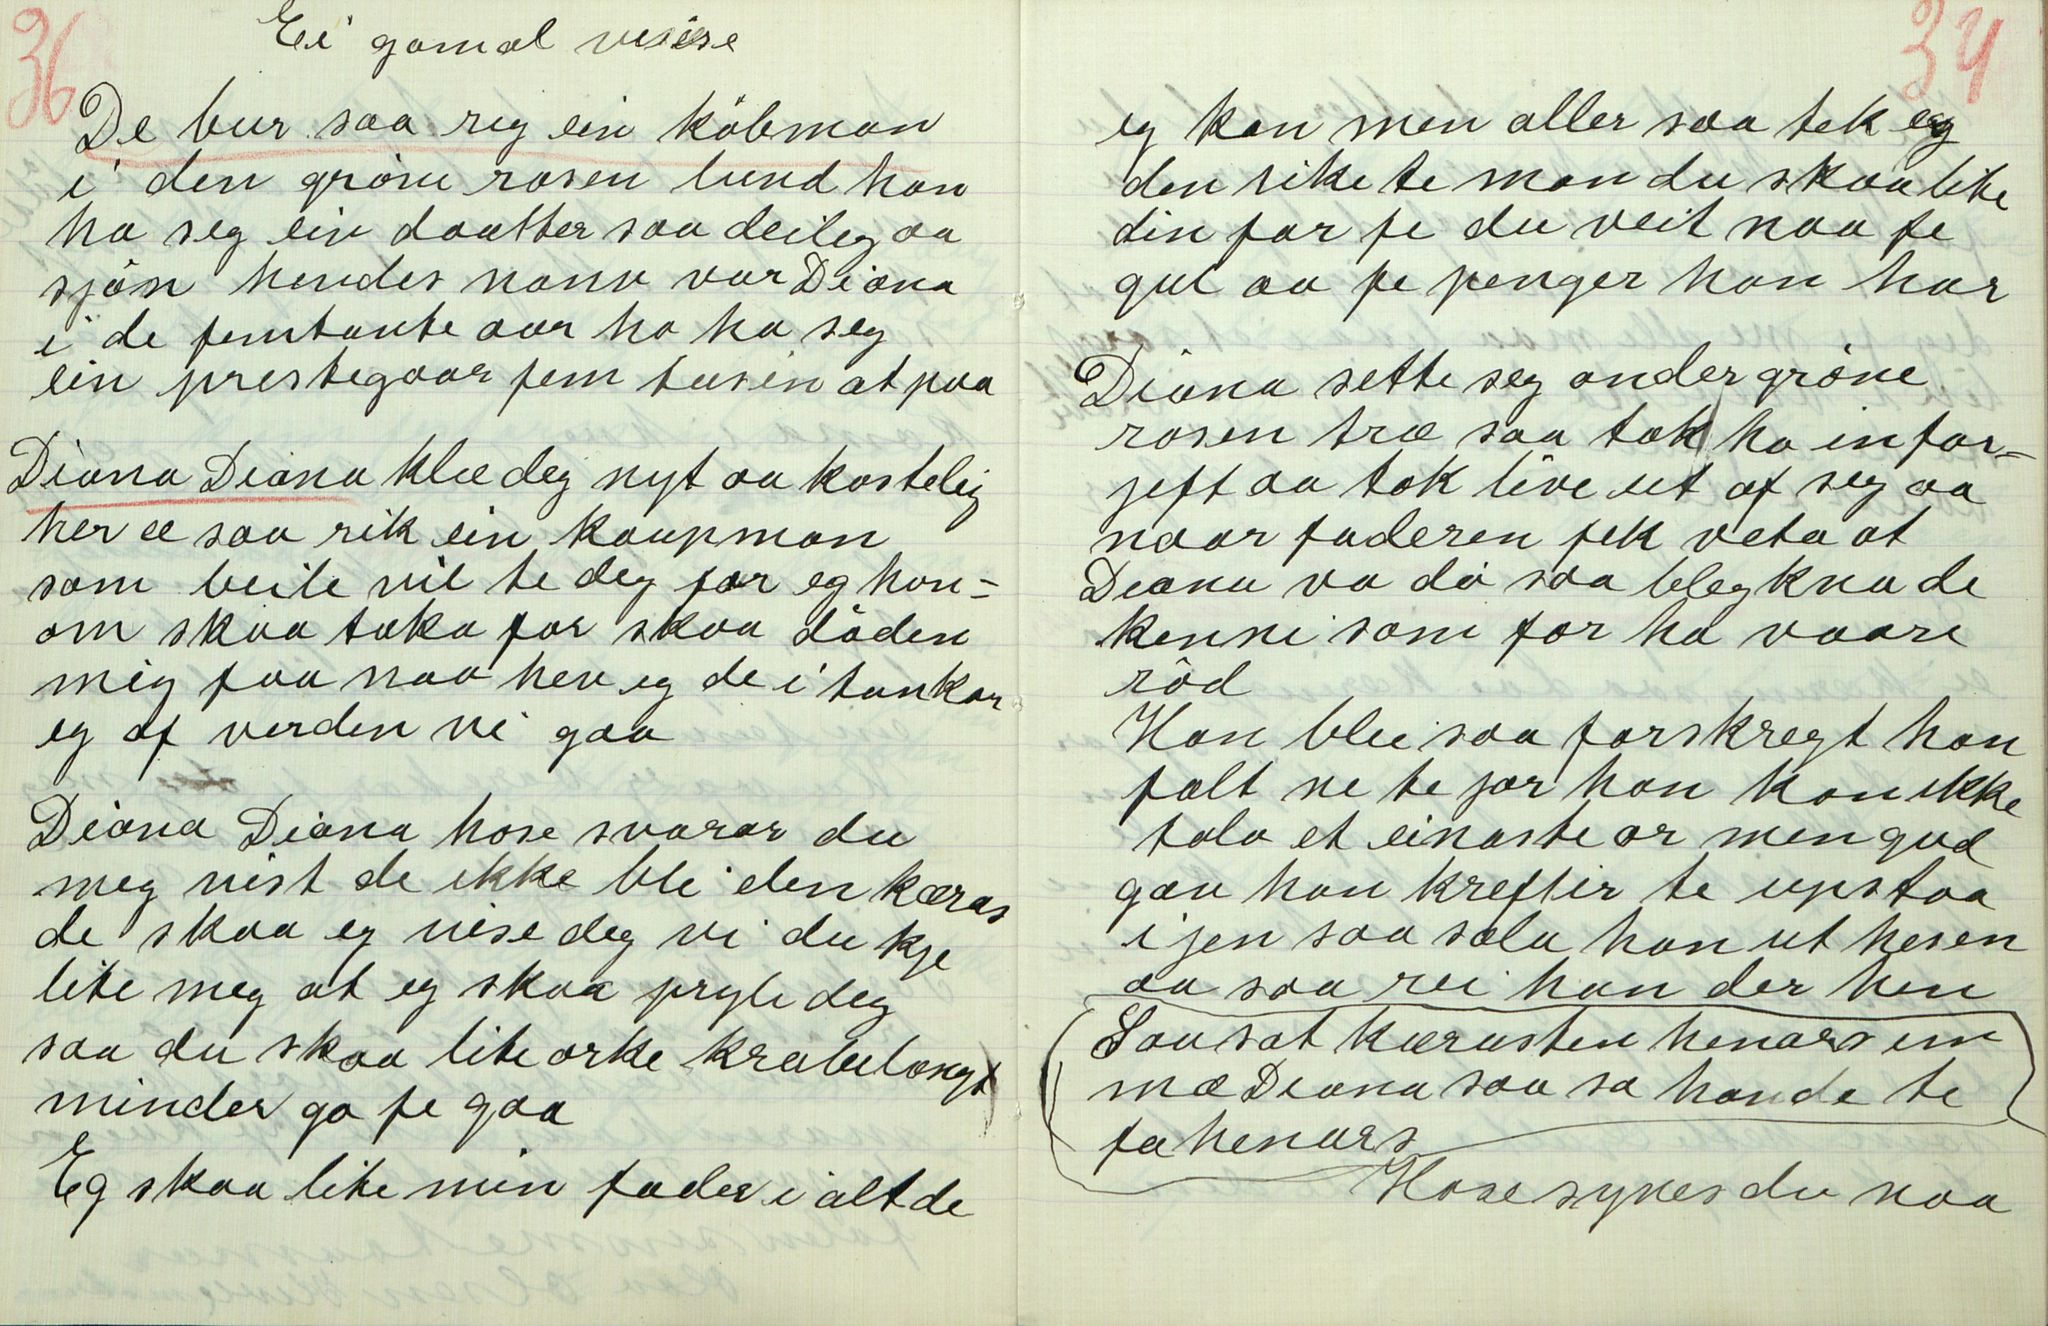 36
Ei gamal visise
De bur saa rig ein köbman
i den gröne rosen lund han
ha seg ein daatter saa deileg aa
sjön hendes nanv var Diana
i de femtante aar ho ha seg
ein prestegaar fem tusen at paa
Diana Diana klæ deg nyt aa kostelig
her æ saa rik ein kaupman
som beile vil te deg for eg han-
om skaa taka for skaa döden
mig faa naa hev eg de i tankar
eg af verden vi gaa
Diana Diana hose svarar du
meg vist de ikke bli den kæras
de skaa eg vise deg vi du kje
lite meg at eg skaa pryle deg
saa du skaa lite orke krabelöngt
minder ga fe gaa
Eg skaa lite min fader i alt de
34
eg kan men aller saa tek eg
den rike te man du skaa lite
din far fe du veit naa fe
gul aa fe penger han har
Diana sette seg onder gröne
rosen træ saa tok ho in for-
jeft aa tok live ut af seg aa
naar faderen fek veta at
Diana va dö saa blegkna de
kenni som for ha vaare
röd
Han blei saa forskregt han
falt ne te jor han kan ikke
tala et einaste or men gud
gav han krefter te upstaa
ijen saa sala han ut hesen
aa saa rei han der hen
Saa sat kærasten henars im
mæ Diana saa sa han de te
fa henars
Hose synes du naa